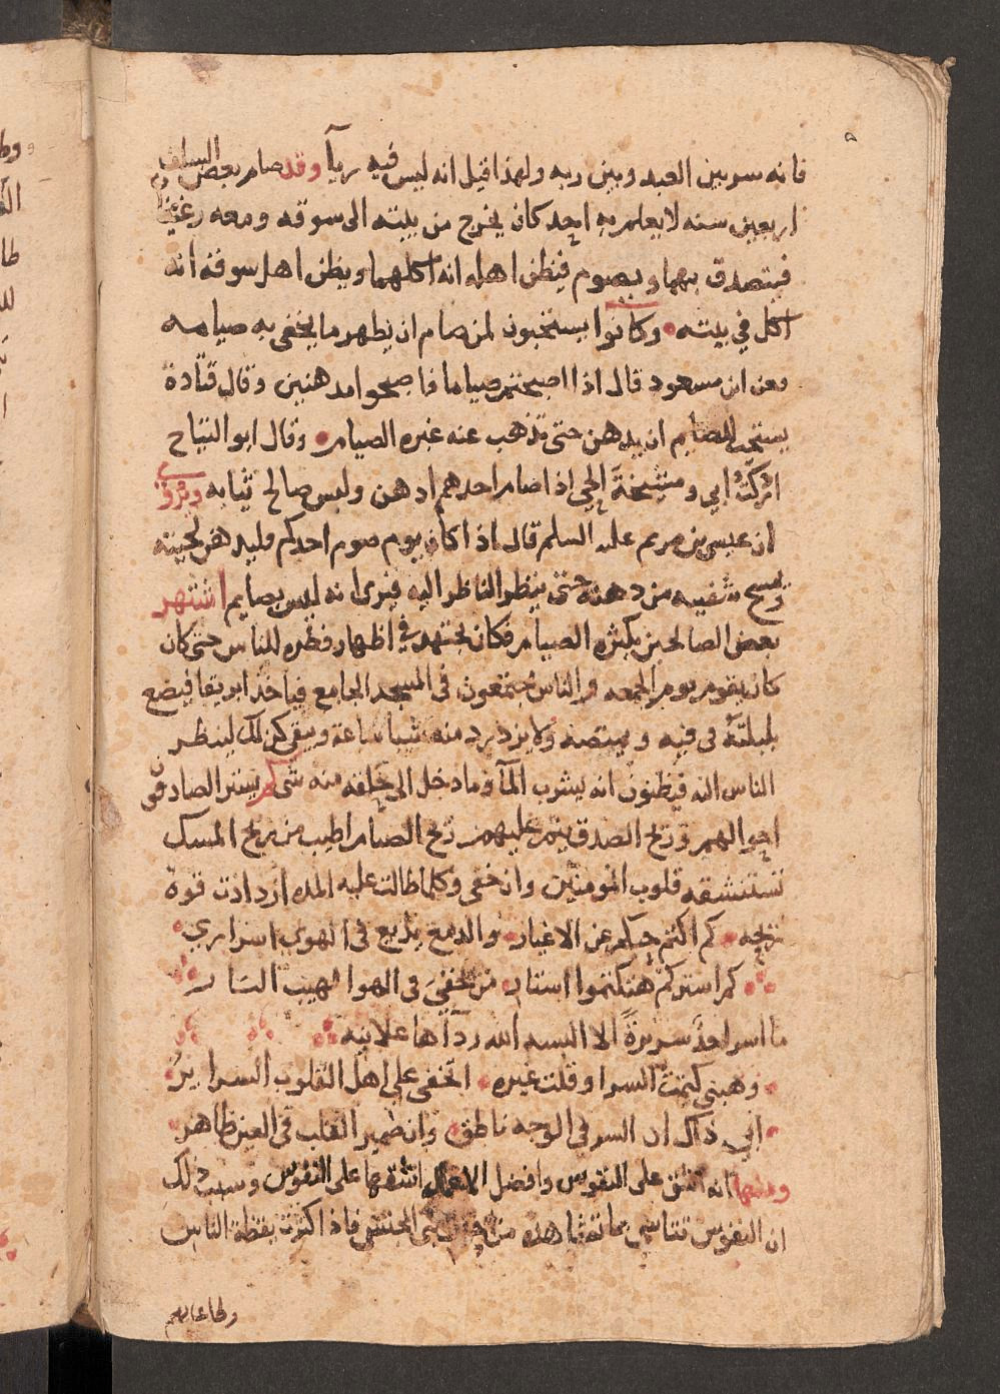 فانه سر بين العبد وبين ربه ولهذا قيل انه ليس فيه رياً وقد صام بعض السلف
اربعين سنه لا يعلم به احد كان يخرج من بيته الى سوقه ومعه رغيفان
فيتصدق بهما ويصوم فيظن اهله انه اكلهما ويظن اهل سوقه انه
اكل في بيته وكانوا يستحبون لمن صام ان يظهر ما يخفى به صيامه
وعن ابن مسعود قال اذا اصبحتم صياما فاصبحوا مدهنين وقال قتادة
يستحب للصايم ان يدهن حتى تذهب عنه غبره الصيام وقال ابو التياح
ادركتُ ابي ومشيخةَ الحي اذا صام احدهم ادهن ولبس صالح ثيابه ويُروى
ان عيسى بن مريم عله السلم قال اذا كان يوم صوم احدكم فليدهن لحيته
ويمسح شفتيه من دهنه حتى ينظر الناظر اليه فيرى انه ليس بصايم اشتهر
بعض الصالحين بكثره الصيام فكان يجتهد في اظهار فطره للناس حتى كان
كان يقوم يوم الجمعه والناس مجتمعون فى المسجد الجامع فياخذ ابريقا فيضع
بلبلته فى فيه ويمتصه ولا يزدرد منه شيا ساعة ويبقى كذلك لينظر
الناس اليه فيظنون انه يشرب المآ وما دخل الى حلقه منه شى كم يستر الصادقون
احوالهم وريح الصدق ينم عليهم ريح الصيام اطيب من ريح المسك
تستنشقه قلوب المومنين وان خفى وكلما طالت عليه المده ازدادت قوة
ريحه كم اكتم حبكم عن الاغيار والدمع يذيع فى الهوى اسراري
كم استركم هتكتموا استاري من يخفيَ فى الهوا لهيب النار
ما اسر احدٌ سريرةً الا البسه الله ردآها علانيه
وهبني كتمت السر او قلت غيره اتخفى على اهل القلوب السراير
ابى ذاك ان السر في الوجه ناطق وان ضمير القلب فى العين ظاهر
ومنها انه اشق على النفوس وافضل الاعمال اشقها على النفوس وسبب ذلك
ان النفوس تتاسى بما تشاهده من احوال بنى الجنس فاذا كثرت يقظة الناس
وطاعاتهم